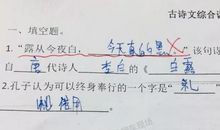 古诗文综合
一、填空题。
1.“露从今夜白，今天真的黑。”该句诗
自唐代诗人李白的《白露
2.孔子认为可以终身奉行的一个字是“礼